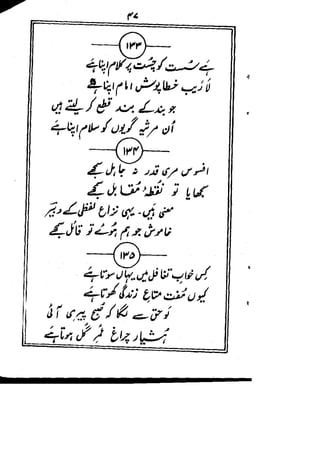 ۴۷
۱۳۳
ہے سست کو چست پر کلام اپنا ہے
لاریب خطا پوش امام اپنا ہے
جو بند کے بند قطع کر لیتے ہیں
اُن مرثیہ گویوں کو سلام اپنا ہے
۱۳۴
افسوس مری قدر نہ جاہل سمجھے
سمجھایا تو نقطۂ مقابل سمجھے
معنی ہیں یہی نزاع لفظی کے دبیر
خاموش جو ہم ہوئے تو قائل سمجھے
۱۳۵
کس خواب تغافل میں یہاں سوتا ہے
کیوں مفت متاع زندگی کھوتا ہے
لو حق سے لگا کہ صبح پیری آئی
ہشیار چراغ عمر گل ہوتا ہے